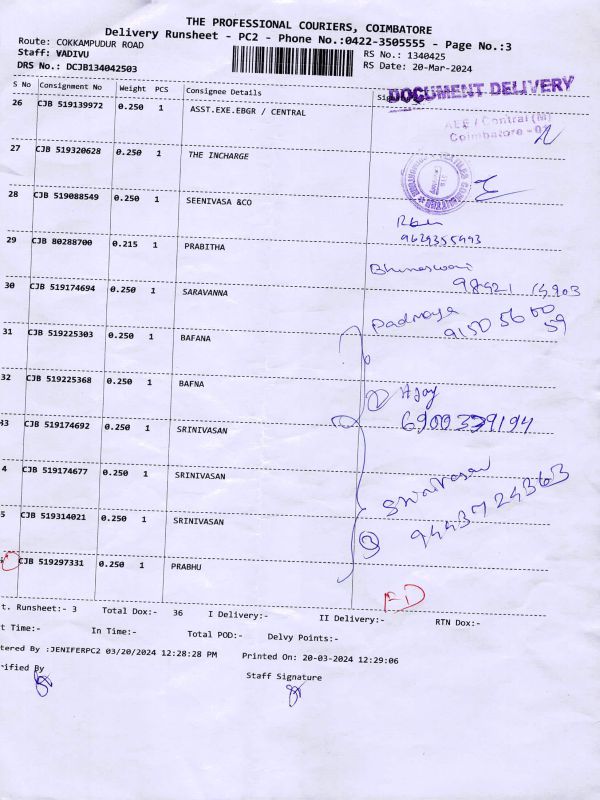 THE PROFESSIONAL COURIERS, COIMBATORE
Delivery Runsheet - PC2 - Phone No.:0422-3505555 - Page No.:3
Route: COKKAMPUDUR ROAD
RS No.: 1340425
Staff: VADIVU
RS Date: 20-Mar-2024
DRS No.: DCJB134042503
S No Consignment No Weight PCS Consignee Details
DOCUMENT DELIVERY
26 CJB 519139972 0.250 1 ASST.EXE.EBGR / CENTRAL
AEE / Central (M)
Coimbatore
27 CJB 519320628 0.250 1 THE INCHARGE
28 CJB 519088549 0.250 1 SEENIVASA &CO
9629355493
29 CJB 80288700 0.215 1 PRABITHA
Bhuneswari
98421 14903
30 CJB 519174694 0.250 1 SARAVANNA
9150 5600
59
31 CJB 519225303 0.250 1 BAFANA
32 CJB 519225368 0.250 1 BAFNA
① Ajay
33 CJB 519174692 0.250 1 SRINIVASAN
6900339194
4 CJB 519174677 0.250 1 SRINIVASAN
Srinivasan
9443724363
5 CJB 519314021 0.250 1 SRINIVASAN
②
CJB 519297331 0.250 1 PRABHU
t. Runsheet:- 3 Total Dox:- 36 I Delivery:- II Delivery:- RTN Dox:-
t Time:- In Time:- Total POD:- Delvy Points:-
tered By :JENIFERPC2 03/20/2024 12:28:28 PM Printed On: 20-03-2024 12:29:06
rified By
Staff Signature